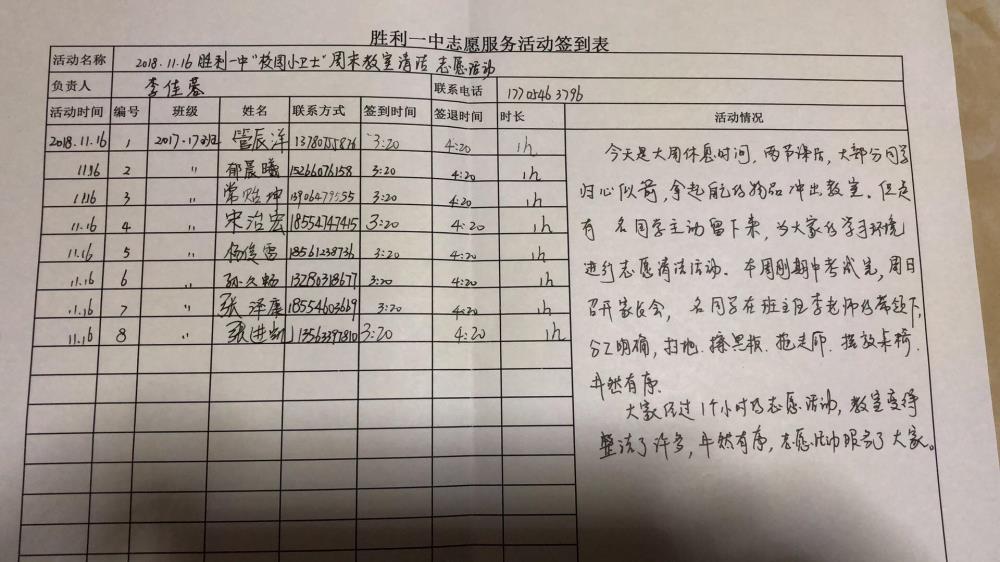 胜利一中志愿服务活动签到表
活动名称 2018.11.16 胜利一中"校园小卫士"周末教室清洁 志愿活动
负责人 李佳蓉 联系电话 17705463796
活动时间 编号 班级 姓名 联系方式 签到时间 签退时间 时长 活动情况
2018.11.16 1 2017.17班 管辰洋 13780755826 3:20 4:20 1h
11.16 2 〃 郁晨曦 15266076158 3:20 4:20 1h
11.16 3 〃 常贻坤 3:20 4:20 1h
11.16 4 〃 宋治宏 18554747415 3:20 4:20 1h
11.16 5 〃 杨俊雷 18561238736 3:20 4:20 1h
11.16 6 〃 孙久畅 13280318677 3:20 4:20 1h
11.16 7 〃 张泽康 18554603669 3:20 4:20 1h
11.16 8 〃 张进 13563397810 3:20 4:20 1h
今天是大周休息时间，两节课后，大部分同学
归心似箭，拿起航的物品冲出教室。但是
有 名同学主动留下来，为大家的学习环境
进行志愿清洁活动。本周刚期中考试完，周日
召开家长会， 名同学在班主任李老师的带领下，
分工明确，扫地.擦黑板.拖走廊.摆放桌椅.
井然有序.
大家经过1个小时的志愿活动，教室变得
整洁了许多，井然有序，志愿活动服务了大家。